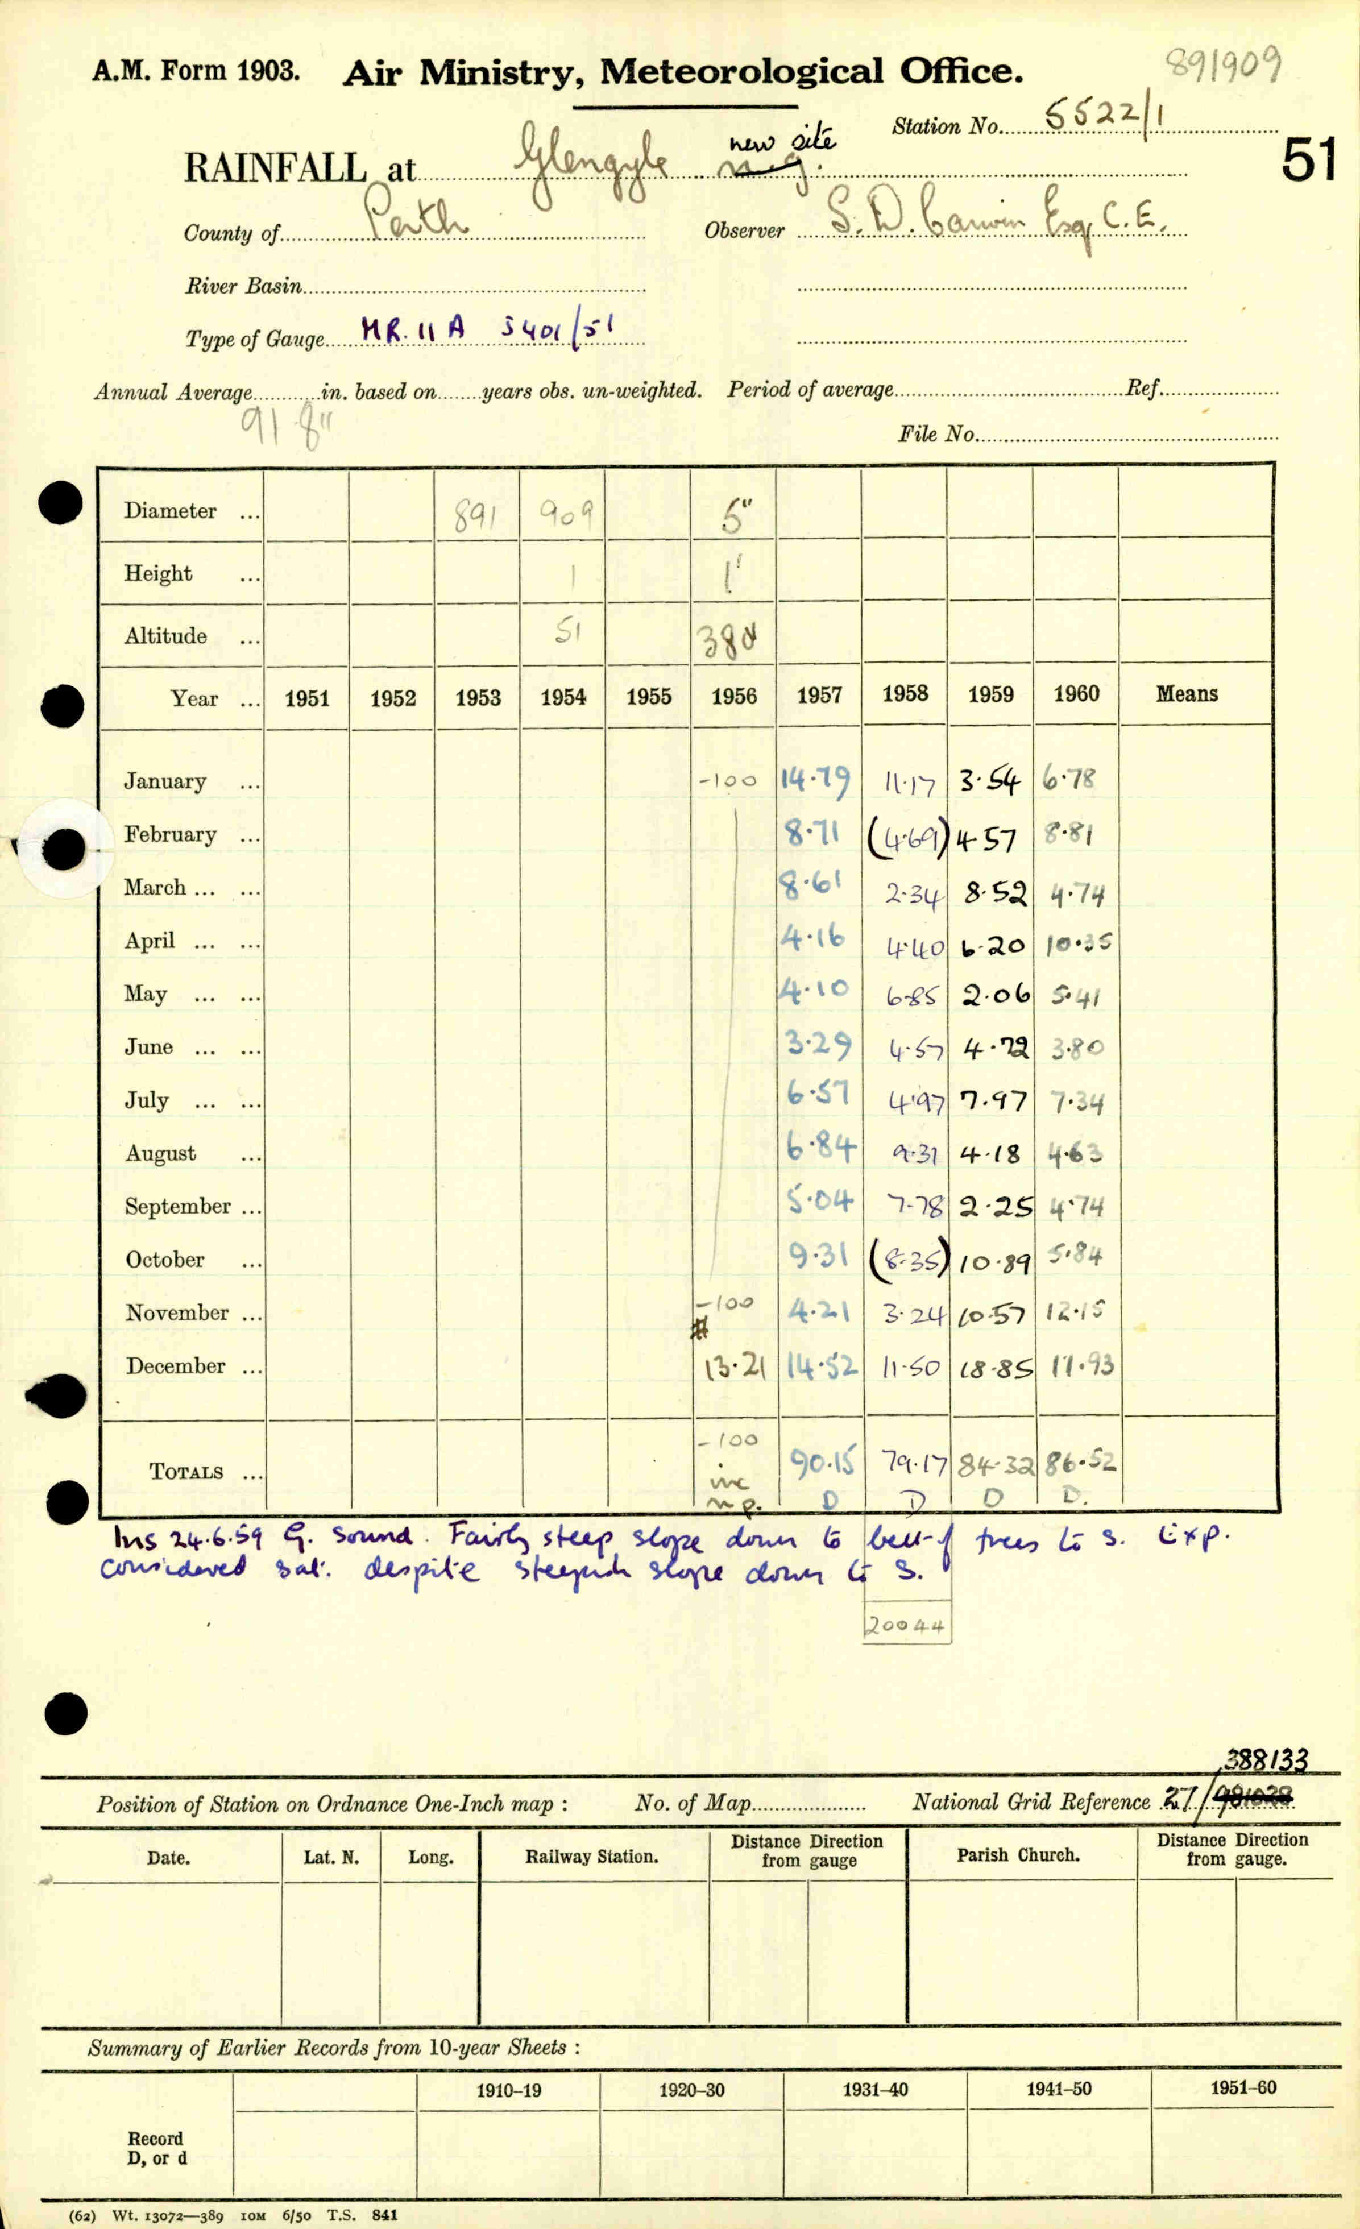 A.M. Form 1903. Air Ministry, Meteorological Office. 891909
Station No. 5522/1
51
RAINFALL at Glengyle new site
County of Perth Observer S. D. Canvin Esq. C.E.
River Basin
Type of Gauge MR. 11 A 5401/51
Annual Average in. based on years obs. un-weighted. Period of average Ref.
91 8"
File No.
Diameter ... 891 909 5"
Height ... 1 1'
Altitude ... 51 380
Year ... 1951 1952 1953 1954 1955 1956 1957 1958 1959 1960 Means
January ... -100 14.79 11.17 3.54 6.78
February ... 8.71 (4.69) 4.57 8.81
March ... ... 8.61 2.34 8.52 4.74
April ... ... 4.16 4.40 6.20 10.35
May ... ... 4.10 6.85 2.06 5.41
June ... ... 3.29 4.57 4.72 3.80
July ... ... 6.57 4.97 7.97 7.34
August ... 6.84 9.31 4.18 4.63
September ... 5.04 7.78 2.25 4.74
October ... 9.31 (8.35) 10.89 5.84
November ... -100 4.21 3.24 10.57 12.15
December ... 13.21 14.52 11.50 18.85 11.93
-100
TOTALS ... inc 90.15 79.17 84.32 86.52
n.p. D D D D.
Ins 24.6.59 G. sound. Fairly steep slope down to belt of trees to S. Exp.
considered sat. despite steepish slope down to S.
20044
388133
Position of Station on Ordnance One-Inch map : No. of Map National Grid Reference 27/981028
Date. Lat. N. Long. Railway Station. Distance Direction from gauge Parish Church. Distance Direction from gauge.
Summary of Earlier Records from 10-year Sheets :
1910–19 1920–30 1931–40 1941–50 1951–60
Record
D, or d
(62) Wt. 13072—389 10M 6/50 T.S. 841